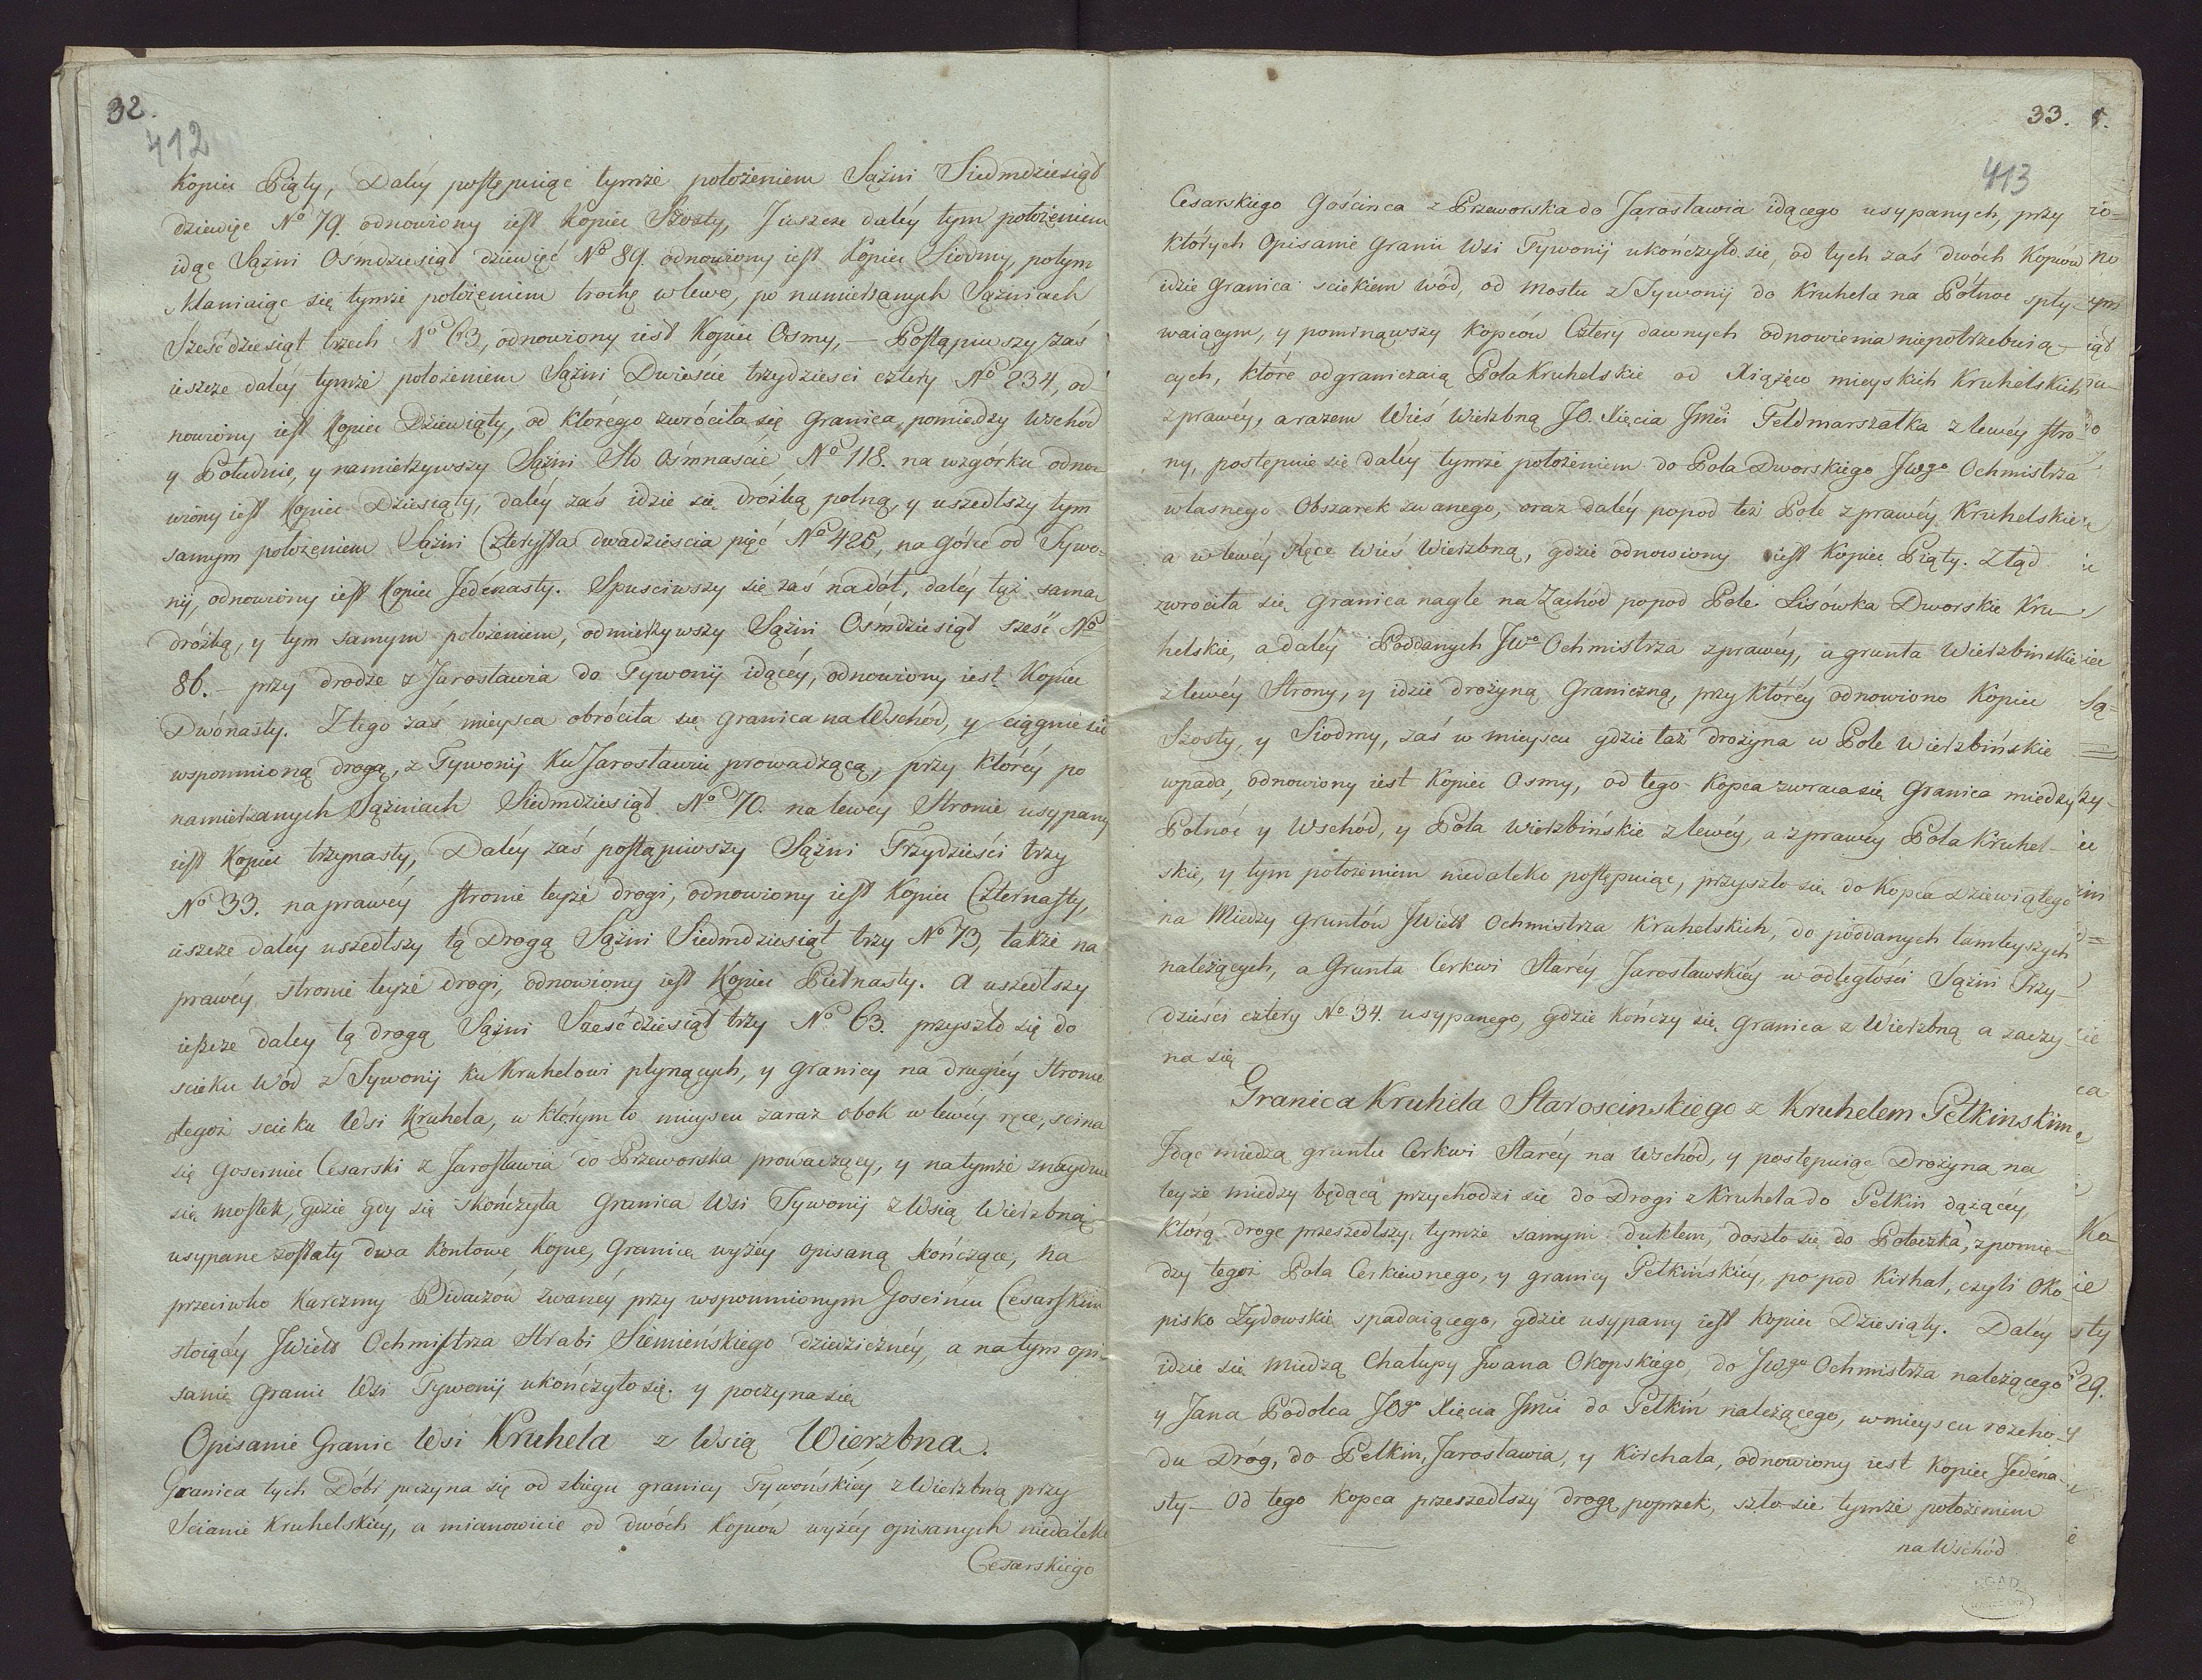 32.
412
Kopiec Piąty, Daléy postępuiąc tymże położeniem Sążni Siedmdziesiąt
dziewięć No 79. odnowiony iest Kopiec Szosty, Jeszcze daléy tym położeniem
idąc Sążni Ośmdziesiąt dziewięć No 89. odnowiony iest Kopiec Siodmy, potym
skłaniaiąc się tymże położeniem trochę w lewo, po namierzanych Sążniach
Sześćdziesiąt trzech No 63, odnowiony iest Kopiec Osmy, — Postąpiwszy zaś
ieszcze daléy tymże położeniem Sążni Dwieście trzydziesci cztéry No 234, od-
nowiony iest Kopiec Dziewiąty, od którego zwróciła się granica pomiedzy Wschód
y Południe, y namierzywszy Sążni Sto Ośmnaście No 118. na wzgórku odno-
wiony iest Kopiec Dziesiąty, daléy zaś idzie się dróżką polną, y uszedłszy tym
samym położeniem Sążni Czterysta dwadziescia pięć No 425, na górce od Tywo-
nij, odnowiony iest Kopiec Jedénasty. Spusciwszy się zaś nadół, daléy tąż samą
dróżką, y tym samym położeniem, odmierzywszy Sążni Ośmdziesiąt sześć No
86. — przy drodze z Jarosławia do Tywonij idącéy, odnowiony iest Kopiec
Dwónasty. Z tego zaś mieysca obróciła się granica na Wschód, y ciągnie się
wspomnioną drogą, z Tywonij ku Jarosławiu prowadzącą, przy któréy po
namierzanych Sążniach Siedmdziesiąt No 70. na lewéy Stronie usypany
iest Kopiec trzynasty, Daléy zaś postąpiwszy Sążni Trzydzieści trzy
No 33. na prawéy stronie teyże drogi, odnowiony iest Kopiec Czternasty,
ieszcze daley uszedłszy tą Drogą Sążni Siedmdziesiąt trzy No 73, także na
prawéy stronie teyże drogi, odnowiony iest Kopiec Piętnasty. A uszedłszy
ieszcze daley tą drogą Sążni Sześćdziesiąt trzy No 63. przyszło się do
scieku Wód z Tywonij ku Kruhelowi płynących, y granicy na drugiéy Stronie
tegoż scieku Wsi Kruhela, w którym to mieyscu zaraz obok w lewéy ręce, scina
się Gosciniec Cesarski z Jarosławia do Przeworska prowadzący, y na tymże znayduie
się mostek, gdzie gdy się skończyła Granica Wsi Tywonij z Wsią Wierzbną
usypane zostały dwa Kontowe Kopce, Granicę wyżéy opisaną kończące, na
przeciwko Karczmy Bidaczów zwanéy przy wspomnionym Gościńcu Cesarskim
stoiącéy JWielo Ochmistrza Hrabi Siemieńskiego dziedzicznéy, a na tym opi-
sanie granic Wsi Tywonij ukończyło się. y poczyna się
Opisanie Granic Wsi Kruhela z Wsią Wierzbna.
Granica tych Dóbr poczyna się od zbiegu granicy Tywońskiéy z Wierzbną przy
Ścianie Kruhelskiey, a mianowicie od dwóch Kopców wyżéy opisanych niedaleko
Cesarskiego
33.
413
Cesarskiego Gościńca z Przeworska do Jarosławia idącego usypanych, przy
których Opisanie Granic Wsi Tywonij ukończyło się, od tych zaś dwóch Kopców
idzie Granica sciekiem wód, od mostu z Tywonij do Kruhela na Północ spły-
waiącym, y pominąwszy Kopców Cztery dawnych odnowienia niepotrzebuią-
cych, które odgraniczaią Pola Kruhelskie od Xiążęco mieyskich Kruhelskich
z prawéy, a razem Wieś Wierzbną JO. Xięcia Jmci Feldmarszałka z lewéy stro-
ny, postępuie się daléy tymże położeniem do Pola Dworskiego JWgo Ochmistrza
własnego Obszarek zwanego, oraz daléy popod też Pole z prawéy Kruhelskie
a w lewéy Ręce Wieś Wierzbną, gdzie odnowiony iest Kopiec Piąty. Ztąd
zwrociła się Granica nagle na Zachód popod Pole Lisówka Dworskie Kru-
helskie, a daléy Poddanych JWo Ochmistrza z prawéy, a grunta Wierzbinskie
z lewéy Strony, y idzie drożyną Graniczną, przy któréy odnowiono Kopiec
Szosty, y Siodmy, zaś w mieyscu gdzie taż drożyna w Pole Wierzbińskie
wpada, odnowiony iest Kopiec Osmy, od tego Kopca zwraca się Granica miedzy
Połnoć y Wschód, y Pola Wierzbińskie z lewéy, a z prawéy Pola Kruhel-
skie, y tym położeniem niedaleko postępuiąc, przyszło się do Kopca Dziewiątego
na Miedzy gruntów JWielo Ochmistrza Kruhelskich, do poddanych tamteyszych
należących, a Grunta Cerkwi Staréy Jarosławskiéy w odległości Sążni Trzy-
dzieści cztéry No 34. usypanego, gdzie kończy się Granica z Wierzbną a zaczy-
na się
Granica Kruhela Starościnskiego z Kruhelem Pełkinskim
Idąc miedzą gruntu Cerkwi Staréy na Wschód, y postępuiąc Drożyną na
teyże miedzy będącą przychodzi się do Drogi z Kruhela do Pełkin dążącéy,
którą drogę przeszedłszy, tymże samym duktem, doszło się do Potoczka, z pomię-
dzy tegoż Pola Cerkiewnego, y granicy Pełkińskiéy, po pod Kirhat, czyli Oko-
pisko Zydowskie spadaiącego, gdzie usypany iest Kopiec Dziesiąty. Daléy
idzie się miedzą Chałupy Jwana Okopskiego, do JWgo Ochmistrza należącego
y Jana Podolca JOgo Xięcia Jmci do Pełkiń należącego, w mieyscu rozcho-
du Dróg, do Pełkin, Jarosławia, y Kirchata, odnowiony iest Kopiec Jedéna-
sty — Od tego Kopca przeszedłszy drogę poprzek, szło się tymże położeniem
na Wschód